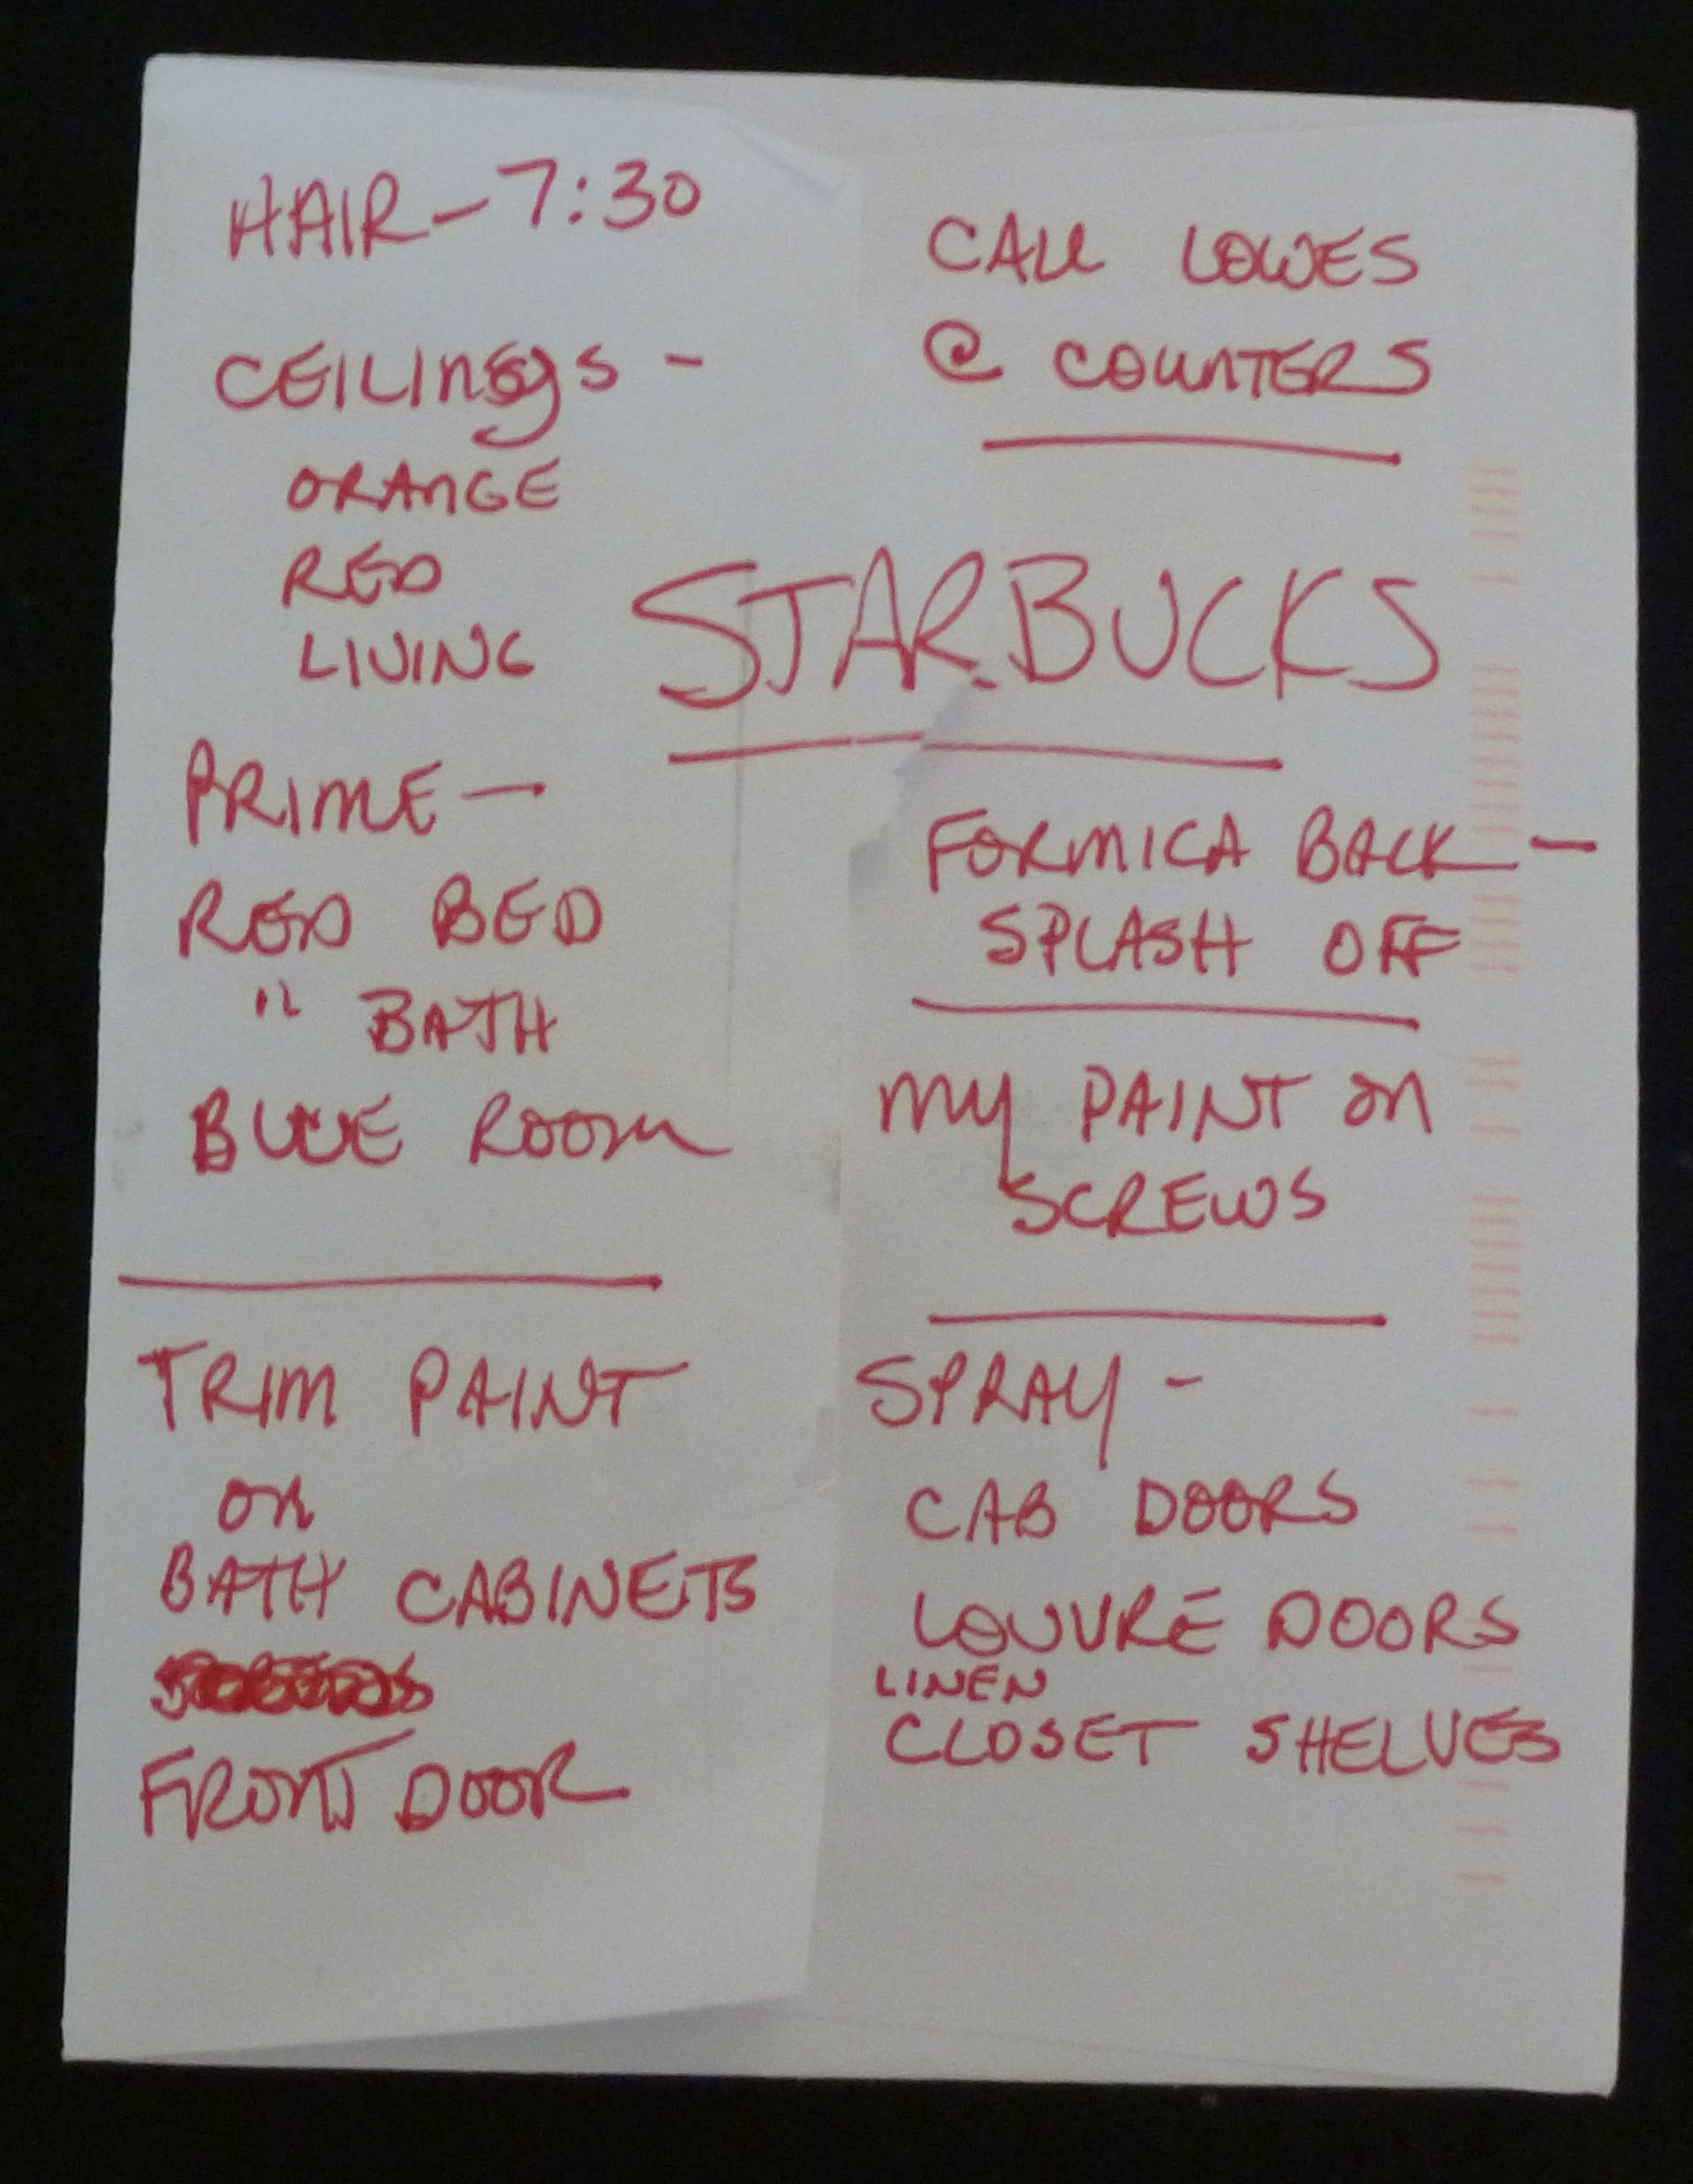 HAIR - 7:30
CEILINGS -
ORANGE
RED
LIVING
PRIME -
RED BED
" BATH
BLUE ROOM
TRIM PAINT
ON
BATH CABINETS
FRONT DOOR
CALL LOWES
@ COUNTERS
STARBUCKS
FORMICA BACK -
SPLASH OFF
MY PAINT ON
SCREWS
SPRAY -
CAB DOORS
LOUVRE DOORS
LINEN
CLOSET SHELVES